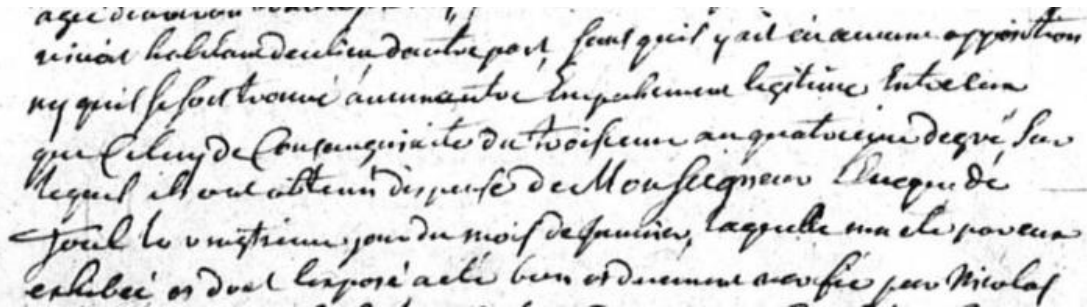 habitant de ce lieu d'autre part, sans quil y ait eu aucune opposition
ny quil se soit trouvé aucun autre Empechement legitime Entre eux
que Celuy de Consanguinité du troisieme au quatrieme degré Sur
lequel ils ont obtenu dispense de Monseigneur L'Eveque de
Toul le jour du mois de Janvier, laquelle ma eté par eux
exhibée et dont l'exposé a eté bien et duement verifié par Nicolas